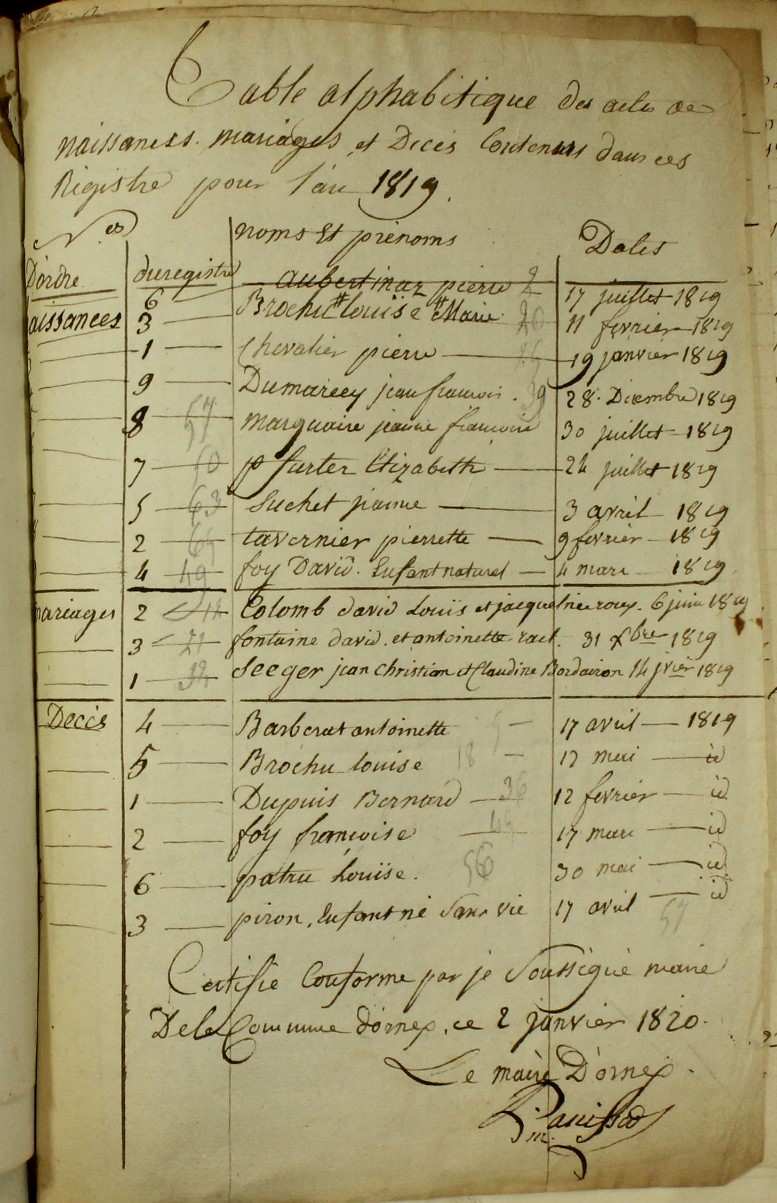 Table alphabitique des actes de
naissances. mariages et Decès Contenus dans ces
Régistre pour l'an 1819.
Nos noms Et prénoms Dates
D'ordre du registre
aissances 6 aubertinaz pierre 2 17 juillet 1819
3 Brochu Louïse Marie 20 11 fevrier 1819
1 Chevalier pierre 19 janvier 1819
9 Dumarcey jean francois. 39 28. Dicembre 1819
8 57 marquaire jeanne francoise 30 juillet 1819
7 60 furter Elizabeth 24 juillet 1819
5 63 Suchet jeanne 3 avril 1819
2 64 tavernier pierrette 9 fevrier 1819
4 49 foy David. Enfant naturel 4 mars 1819
mariages 2 14 Colomb david Louïs et jacqueline roux. 6 juin 1819
3 21 fontaine david. et antoinette 31 Xbre 1819
1 32 Seeger jean Christian et Claudine Bordairon 14 jvier 1819
Decès 4 Barberat antoinette 5 17 avril 1819
5 Brochu louise 18 17 mai id
1 Dupuis Bernard 36 12 fevrier id
2 foy françoise 49 17 mars id
6 patru Louïse. 56 30 mai id
3 piron, Enfant né Sans vie 17 avril id
57
Certifié Conforme par je Soussigné maire
De la Commune d'ornex, ce 2 janvier 1820.
Le maire D'ornex.